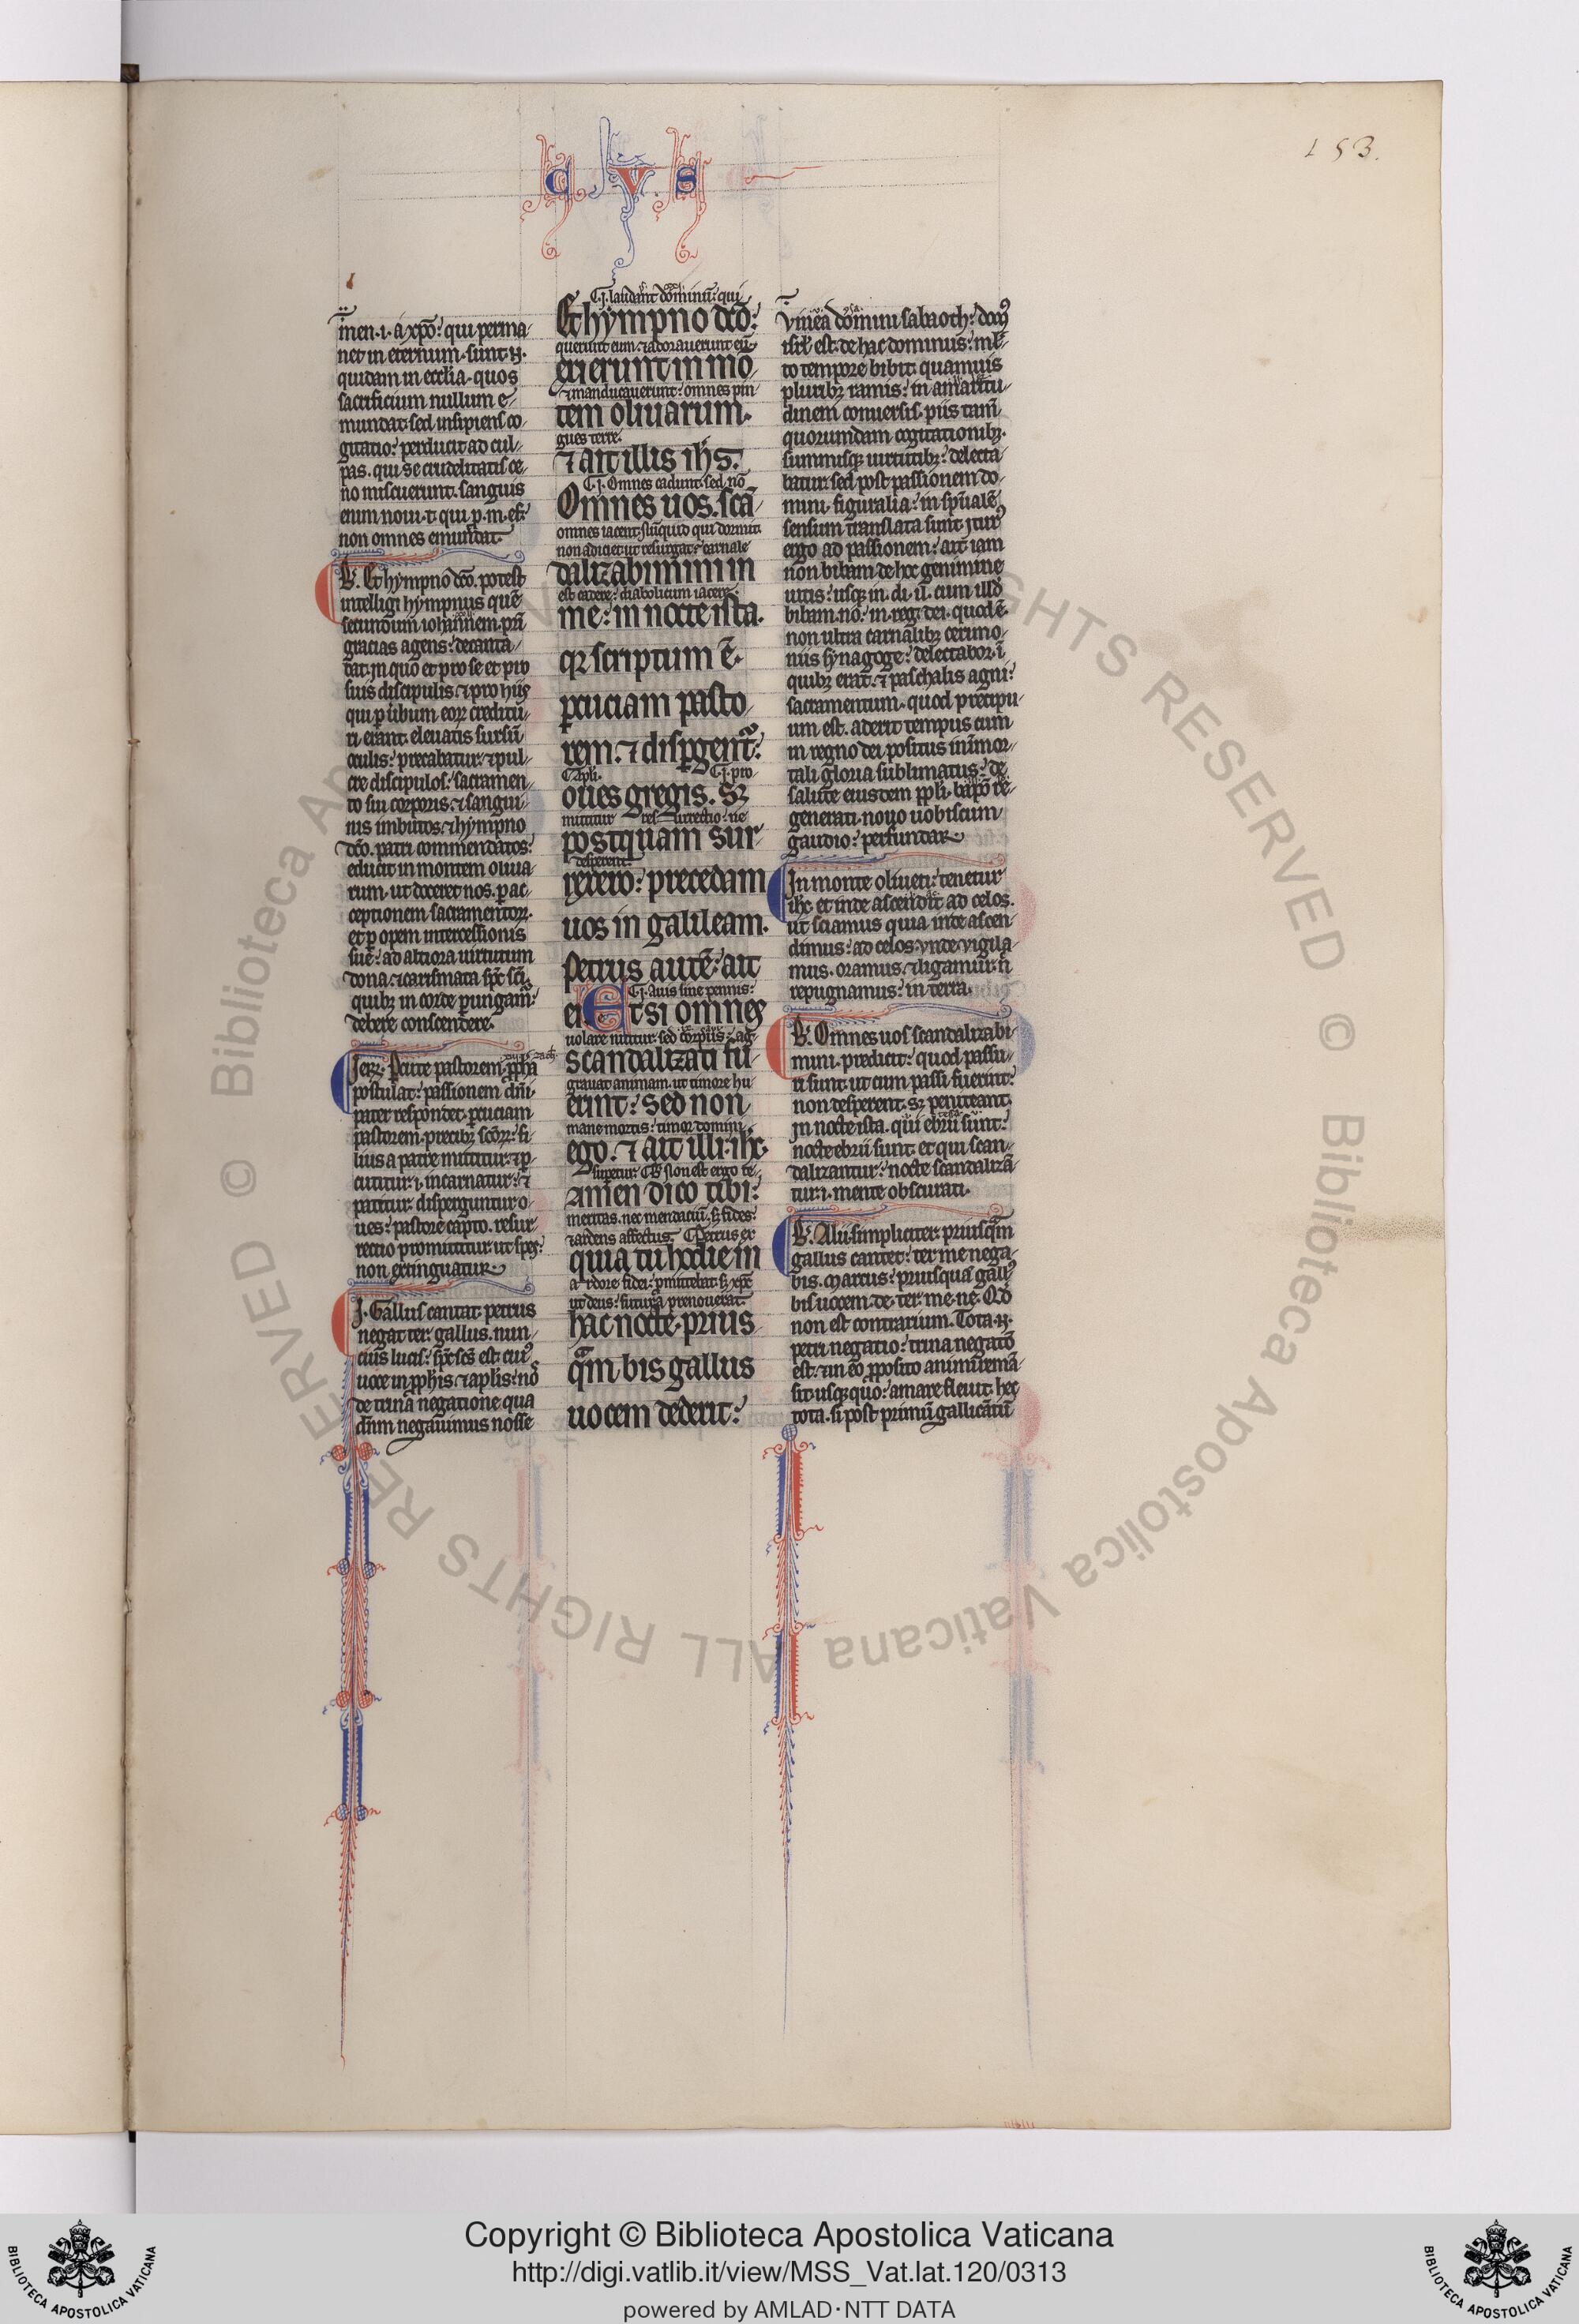 c v s
153.
men .i. a xpō: qui perma-
net in eternum. sunt
quidam in ecclia. quos
sacrificium nullum e-
mundat. sed insipiens co-
gitatio: perducit ad cul-
pas. qui se crudelitatis ce-
no miscuerunt. sanguis
enim noui. t. qui p. m. ef:
non omnes emundat.
B. Et hympno dicō. potest
intelligi hympnus quē
secundum iohannem. pri
gracias agens: decanta-
bat. in quo et pro se et pro
suis discipulis. ⁊ pro hiis
qui p uerbum eorum creditu-
ri erant. eleuatis sursū
oculis: precabatur. ⁊ pul-
cre discipulos: sacramen-
to sui corporis. ⁊ sangui-
nis imbutos. ⁊ hympno
dcō. patri commendatos:
educit in montem oliua-
rum. ut doceret nos. p ac-
ceptionem sacramentorum.
et p opem intercessionis
sue: ad altiora uirtutum
dona. ⁊ carismata spc sci.
quibz in corde pungamur:
debere conscendere.
Ier. Pcute pastorem. ppha
postulat: passionem dni.
pater respondet. pcuciam
pastorem. precibz scorum: fi-
lius a patre mittitur. ⁊ p-
cutitur .i. incarnatur. ⁊
patitur. disperguntur o-
ues: pastore capto. resur-
rectio promittitur. ut spes:
non extinguatur.
I. Gallus cantat. petrus
negat ter. gallus. nun-
cius lucis: spc scs est. cui9
uoce in pphis ⁊ aplis: nos
de trina negatione qua
dnm negauimus nosse
C I. laudant dominū: qui
Et hympno dcō:
querunt eum. ⁊ adorauerunt eū.
exierunt in mō-
⁊ manducauerunt: omnes pin-
tem oliuarum.
gues terre.
⁊ ait illis ihs.
C I. Omnes cadunt. sed nō
Omnes uos. scā-
omnes iacent. Nūquid qui dormit
non adiciet ut resurgat: carnale
dalizabimini in
est cadere: diabolicum iacere.
me: in nocte ista.
qz scriptum ē.
pcuciam pasto-
rem. ⁊ dispgentr:
C apli. C I. pro-
oues gregis. Sz
mittitur resurrectio: ne
postquam sur-
desperent.
rexero: precedam
uos in galileam.
Petrus autē: ait
C I. Auis sine pennis:
ei Etsi omnes
uolare nititur. sed corpus: ag-
scandalizati fu-
grauat animam. ut timore hu-
erint: sed non
mane mortis: timor domini
ego. ⁊ ait illi. ihc.
supetur. C B. Non est ergo te-
Amen dico tibi:
meritas. nec mendaciū. s; fides:
⁊ ardens affectus. C Petrus ex
quia tu hodie in
ardore fidei: pmittebat. s; xpc
ut deus: futura prenouerat.
hac nocte. prius-
qm bis gallus
uocem dederit:
vinea domini sabaoth: dom9
isrl est. de hac dominus: ml-
to tempore bibit. quamuis
pluribz ramis: in amaritu-
dinem conuersis. piis tam
quorumdam cogitationibz.
summisqz uirtutibz: delecta-
batur. sed post passionem do-
mini. figuralia: in spualē
sensum translata sunt. Itur9
ergo ad passionem: ait. iam
non bibam de hoc genimine
uitis: usqz in. di. il. cum illd
bibam. no. in. reg. dei. quod ē.
non ultra carnalibz cerimo-
niis synagoge: delectabor. ī
quibz erat. ⁊ paschalis agni:
sacramentum. quod precipu-
um est. aderit tempus cum
in regno dei positus inmor-
tali gloria sublimatus: de
salute eiusdem ppli. bapō re-
generati. nouo uobiscum
gaudio: perfundar.
In monte oliueti: tenetur
ihc. et inde ascendit ad celos.
ut sciamus quia inde ascen-
dimus: ad celos. vnde vigila-
mus. oramus. ⁊ ligamur: n
repugnamus: in terra.
B. Omnes uos scandalizabi-
mini. predicit: quod passu-
ri sunt. ut cum passi fuerint:
non desperent. Sz peniteant.
In nocte ista. qui ebrii sunt:
nocte ebrii sunt. et qui scan-
dalizantur: nocte scandalizā-
tur .i. mente obscurati.
B. Alii. simpliciter: priusqm
gallus cantet: ter me nega-
bis. Marcus: priusquā gall9
bis uocem. de. ter. me. ne. Qd
non est contrarium. Tota
petri negatio: trina negatō
est. ⁊ in eo pposito animi remā-
sit. usqz quo: amare fleuit. hec
tota. si post primū gallicātū
Copyright © Biblioteca Apostolica Vaticana
http://digi.vatlib.it/view/MSS_Vat.lat.120/0313
powered by AMLAD·NTT DATA
BIBLIOTECA APOSTOLICA VATICANA
BIBLIOTECA APOSTOLICA VATICANA
© Biblioteca Apostolica Vaticana ALL RIGHTS RESERVED © Biblioteca Apostolica Vaticana ALL RIGHTS RESERVED